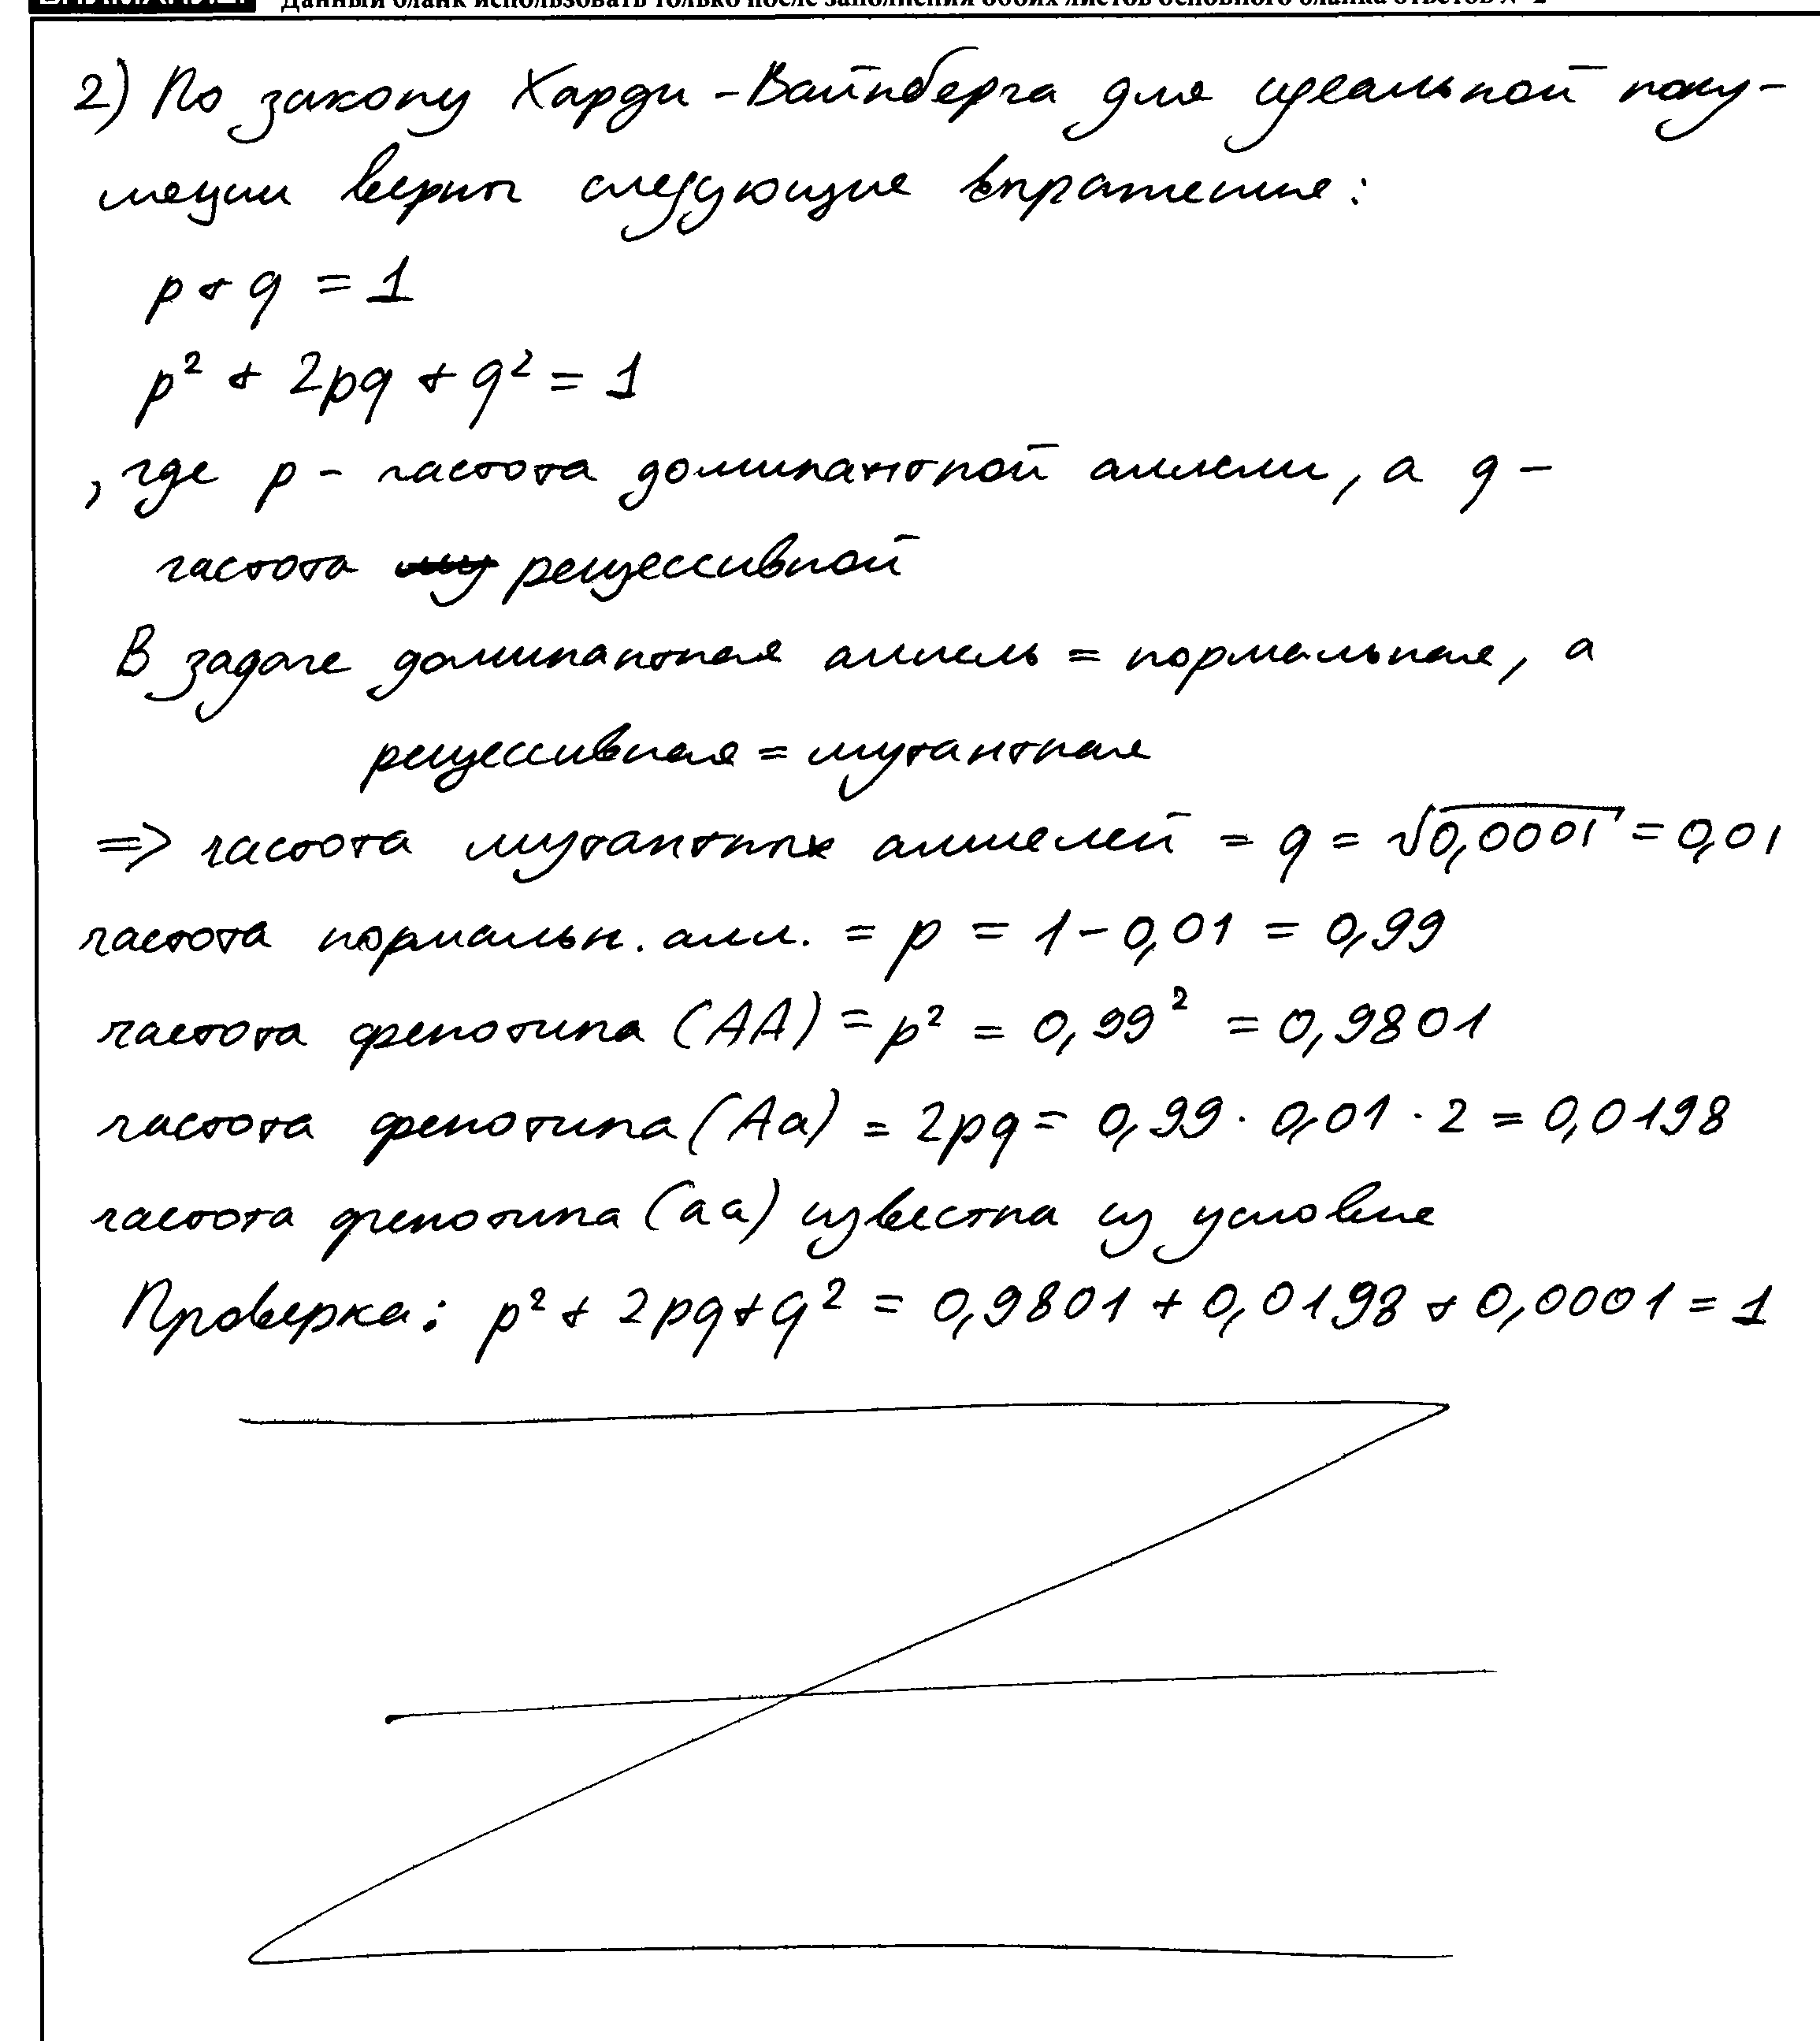 Данный бланк использовать только после заполнения обоих листов основного бланка ответов № 2
2) По закону Харди-Вайнберга для идеальной попу-
ляции верны следующие выражения:
p + q = 1
p² + 2pq + q² = 1
, где p - частота доминантной аллели, а q -
частота рецессивной
В задаче доминантная аллель = нормальная, а
рецессивная = мутантная
=> частота мутантных аллелей = q = √0,0001 = 0,01
частота нормальн. алл. = p = 1 - 0,01 = 0,99
частота фенотипа (AA) = p² = 0,99² = 0,9801
частота фенотипа (Aa) = 2pq = 0,99 · 0,01 · 2 = 0,0198
частота фенотипа (aa) известна из условия
Проверка: p² + 2pq + q² = 0,9801 + 0,0198 + 0,0001 = 1